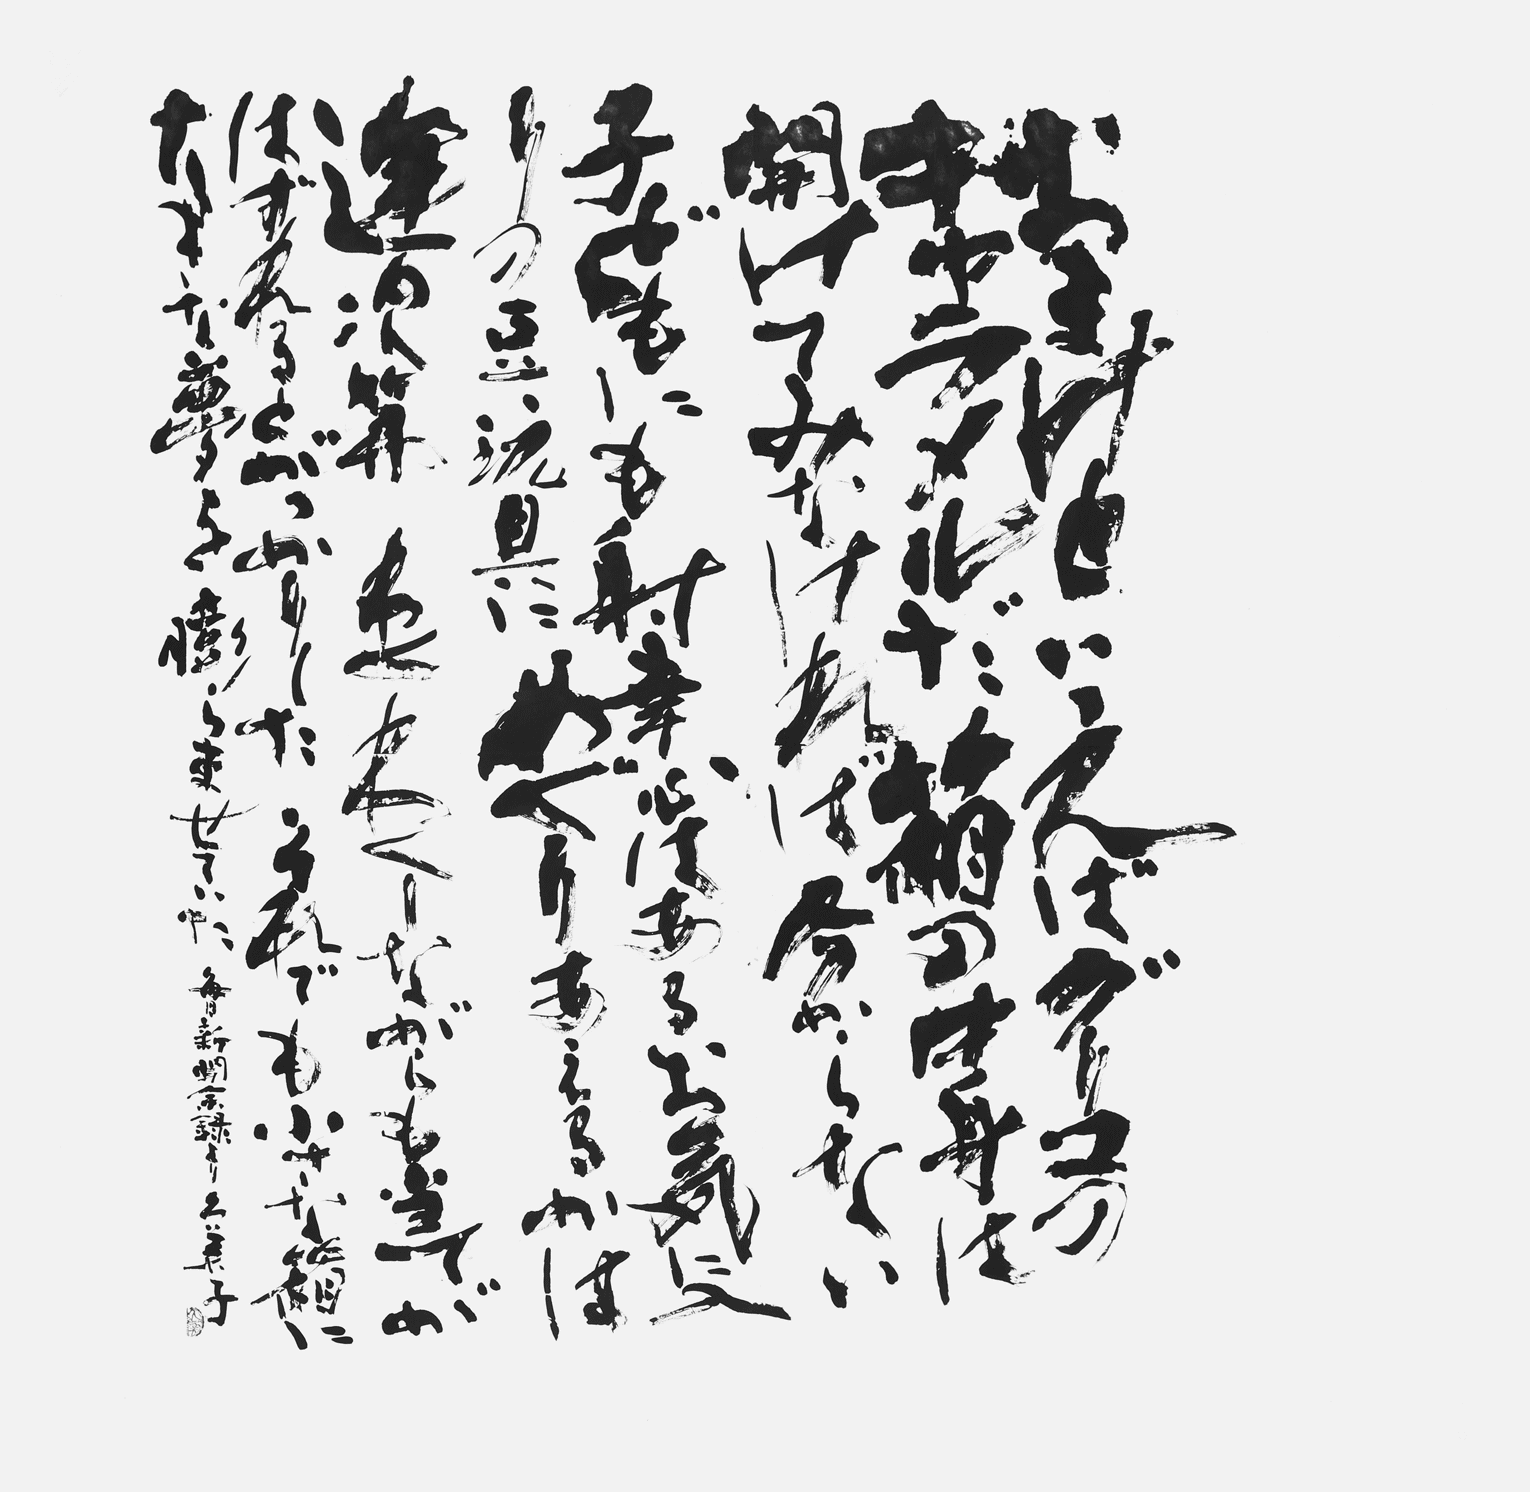 おまけといえばグリコの
キャラメルだ箱の中身は
開けてみなければ分からない
子どもにも射幸心はあるお気に入
りの豆玩具にめぐりあえるかは
運次第わくわくしながらも当てが
はずれるとがっかりしたそれでも小さな箱に
大きな夢を膨らませていた 毎日新聞余録より